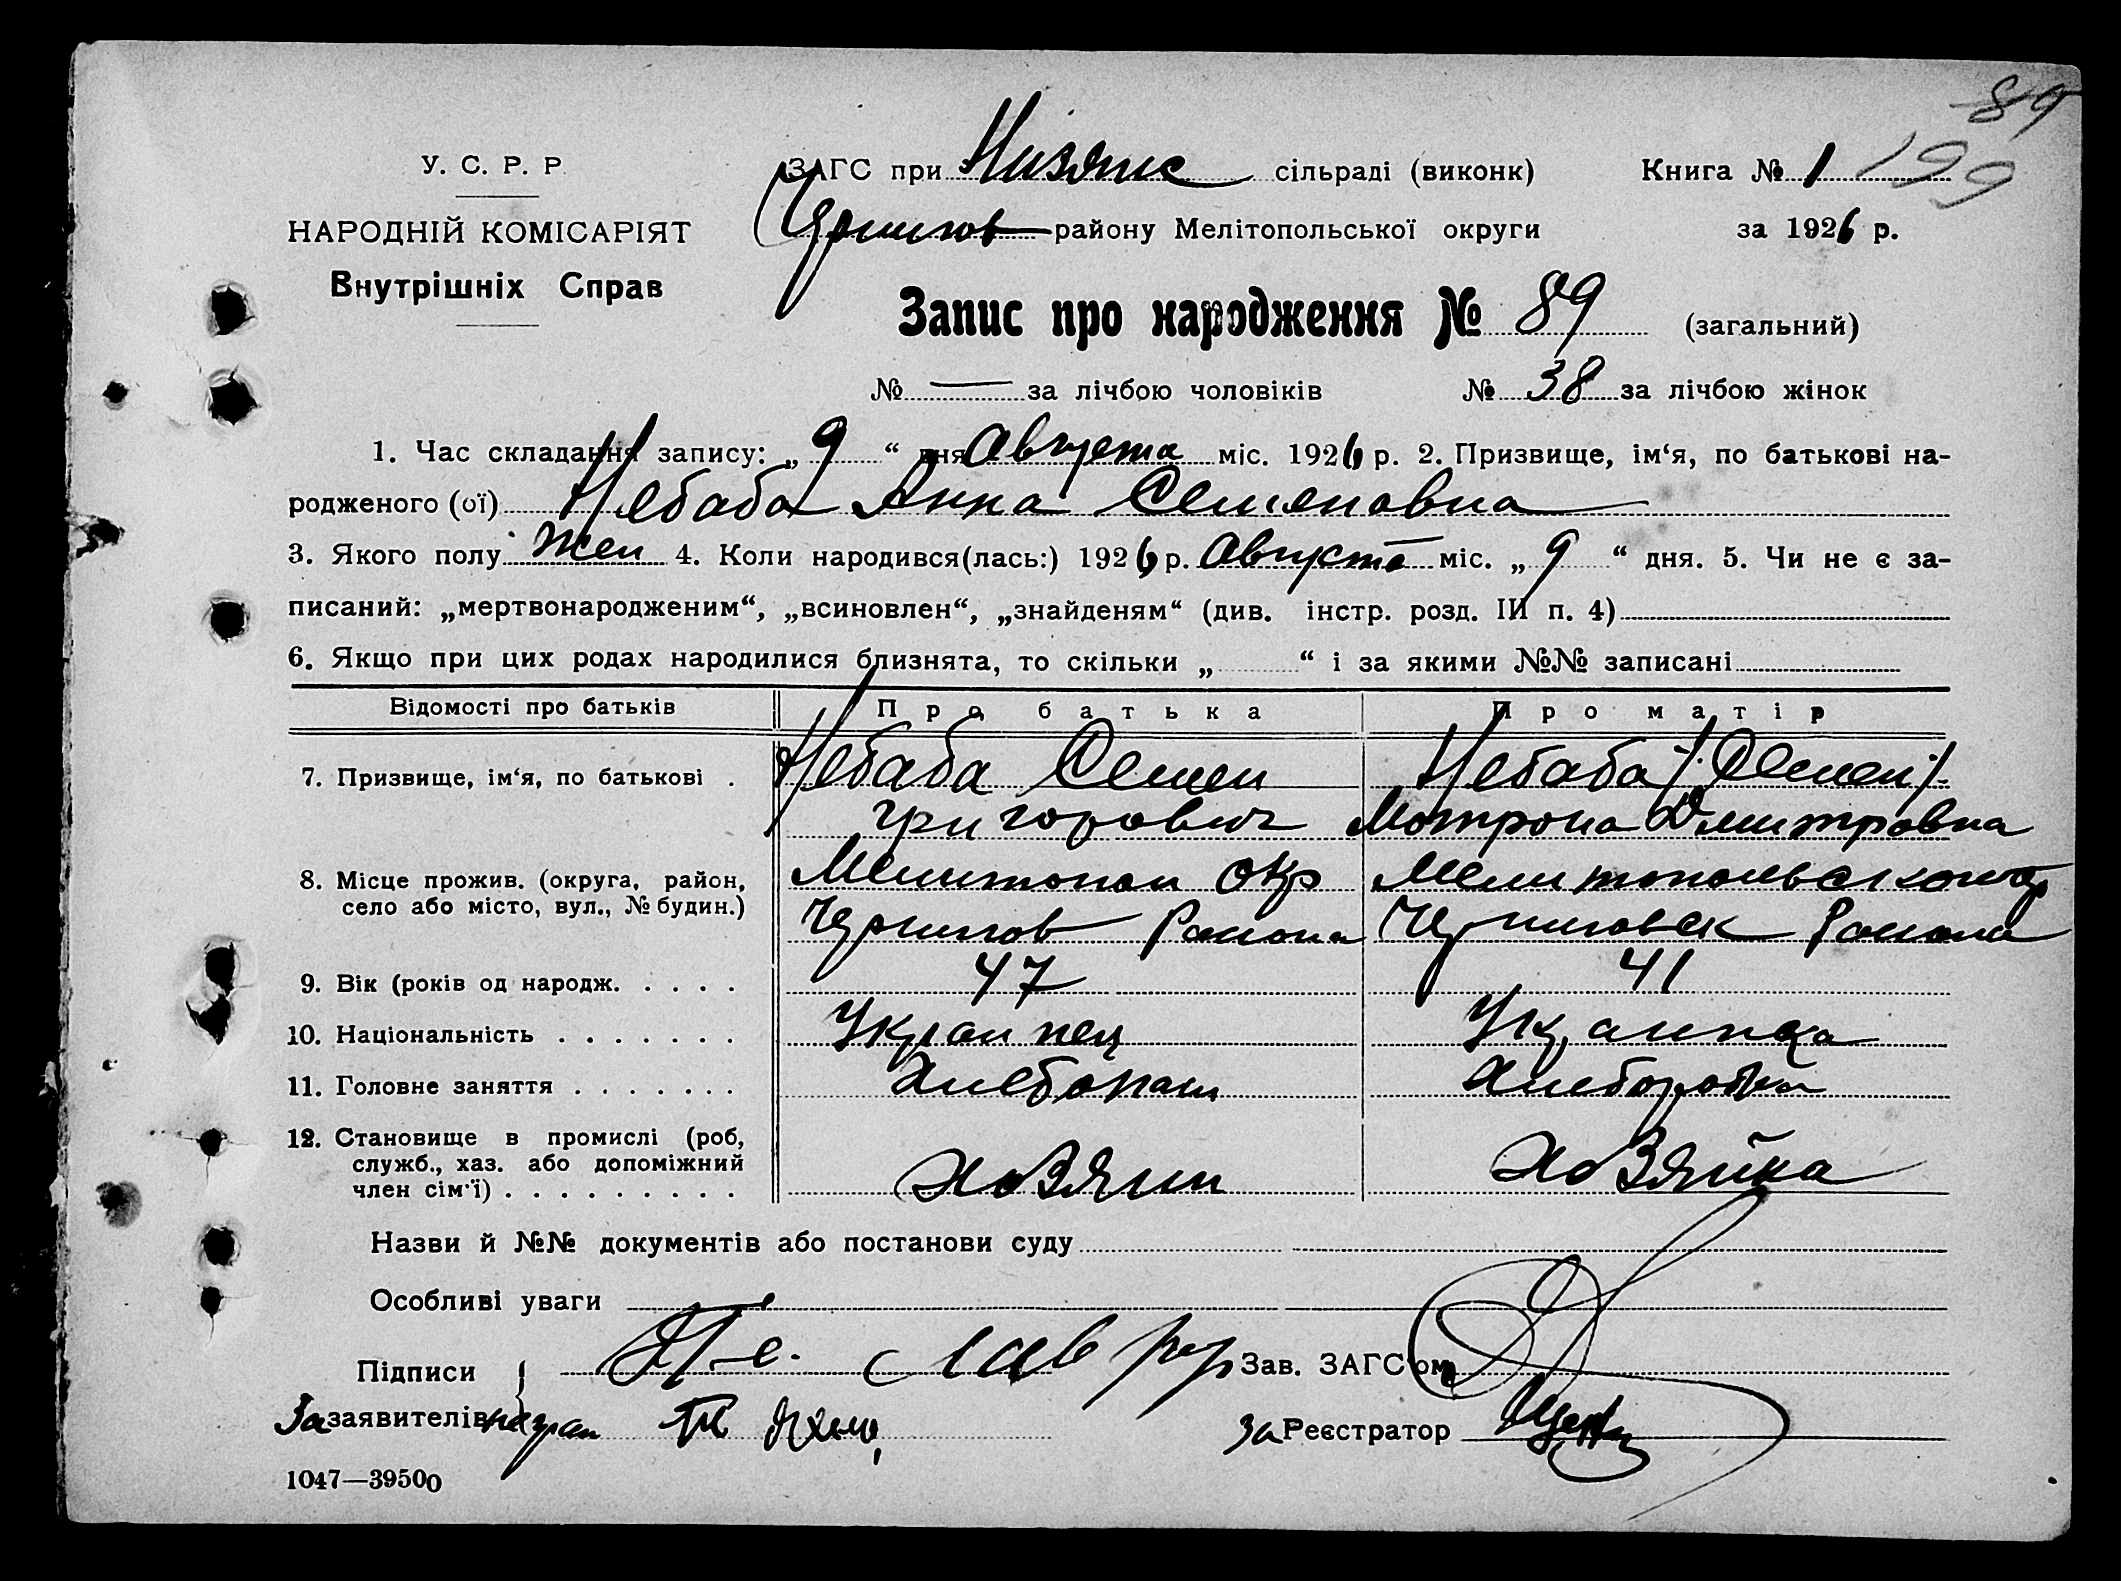 89
199
У. С. Р. Р.
НАРОДНІЙ КОМІСАРІЯТ
Внутрішніх Справ
ЗАГС при Низянс сільраді (виконк)
Книга № 1
Чернигов району Мелітопольської округи
за 1926 р.
Запис про народження № 89 (загальний)
№ — за лічбою чоловіків № 38 за лічбою жінок
1. Час складання запису: „ 9 “ дня Августа міс. 1926 р. 2. Призвище, ім‘я, по батькові на-
родженого (ої) Небаба Анна Семеновна
3. Якого полу Жен 4. Коли народився(лась:) 1926 р. Августа міс. „ 9 “ дня. 5. Чи не є за-
писаний: „мертвонародженим“, „всиновлен“, „знайденям“ (див. інстр. розд. III п. 4)
6. Якщо при цих родах народилися близнята, то скільки „ “ і за якими №№ записані
Відомості про батьків Про батька Про матір
7. Призвище, ім‘я, по батькові . Небаба Семен Небаба /Семен/
Григорович Мотрона Дмитровна
8. Місце прожив. (округа, район, Мелитопол Окр Мелитопольск окр
село або місто, вул., № будин.) Чернигов Района Черниговск Района
9. Вік (років од народж. . . . . 47 41
10. Національність . . . . . . . Украинец Украинка
11. Головне заняття . . . . . . . Хлебопаш Хлеборобка
12. Становище в промислі (роб, служб., хаз. або допоміжний член сім‘ї) . . . . . . . . . Хозяин Хозяйка
Назви й №№ документів або постанови суду
Особливі уваги
Підписи Зав. ЗАГС‘ом
За заявителів неграм За Реєстратор
1047—39500